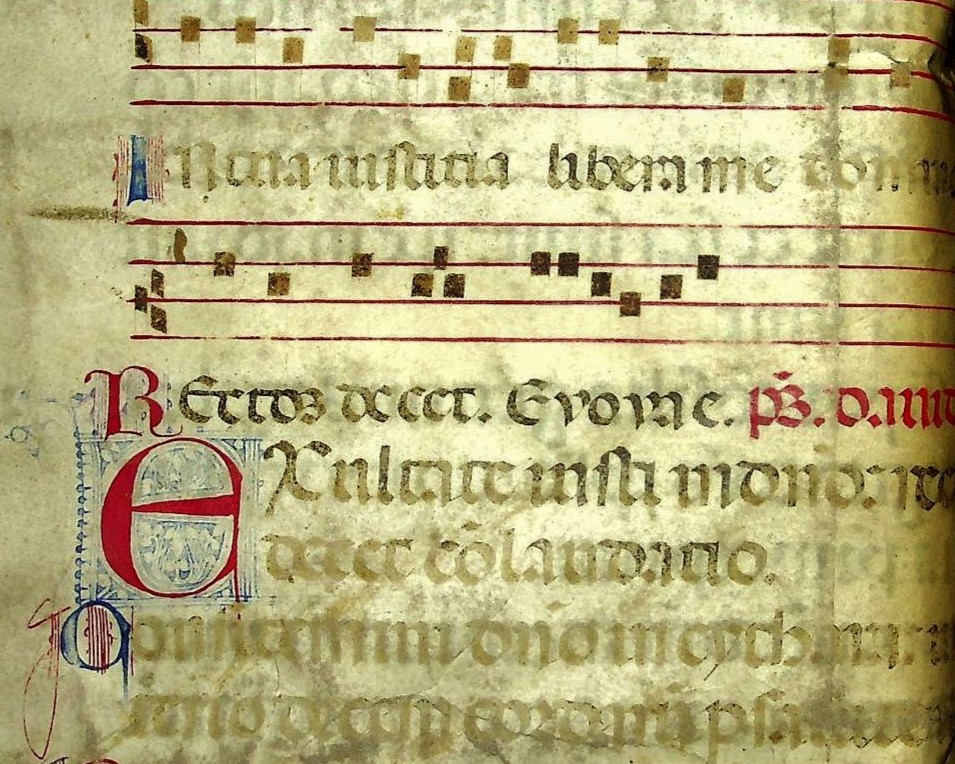 IN tua iusticia libera me domi
REctos decet. Evovae. ps. dauid
EXultate iusti in dno: rec
decet collaudatio.
Confitemini dno in cythara: in
terio decem cordarum psal